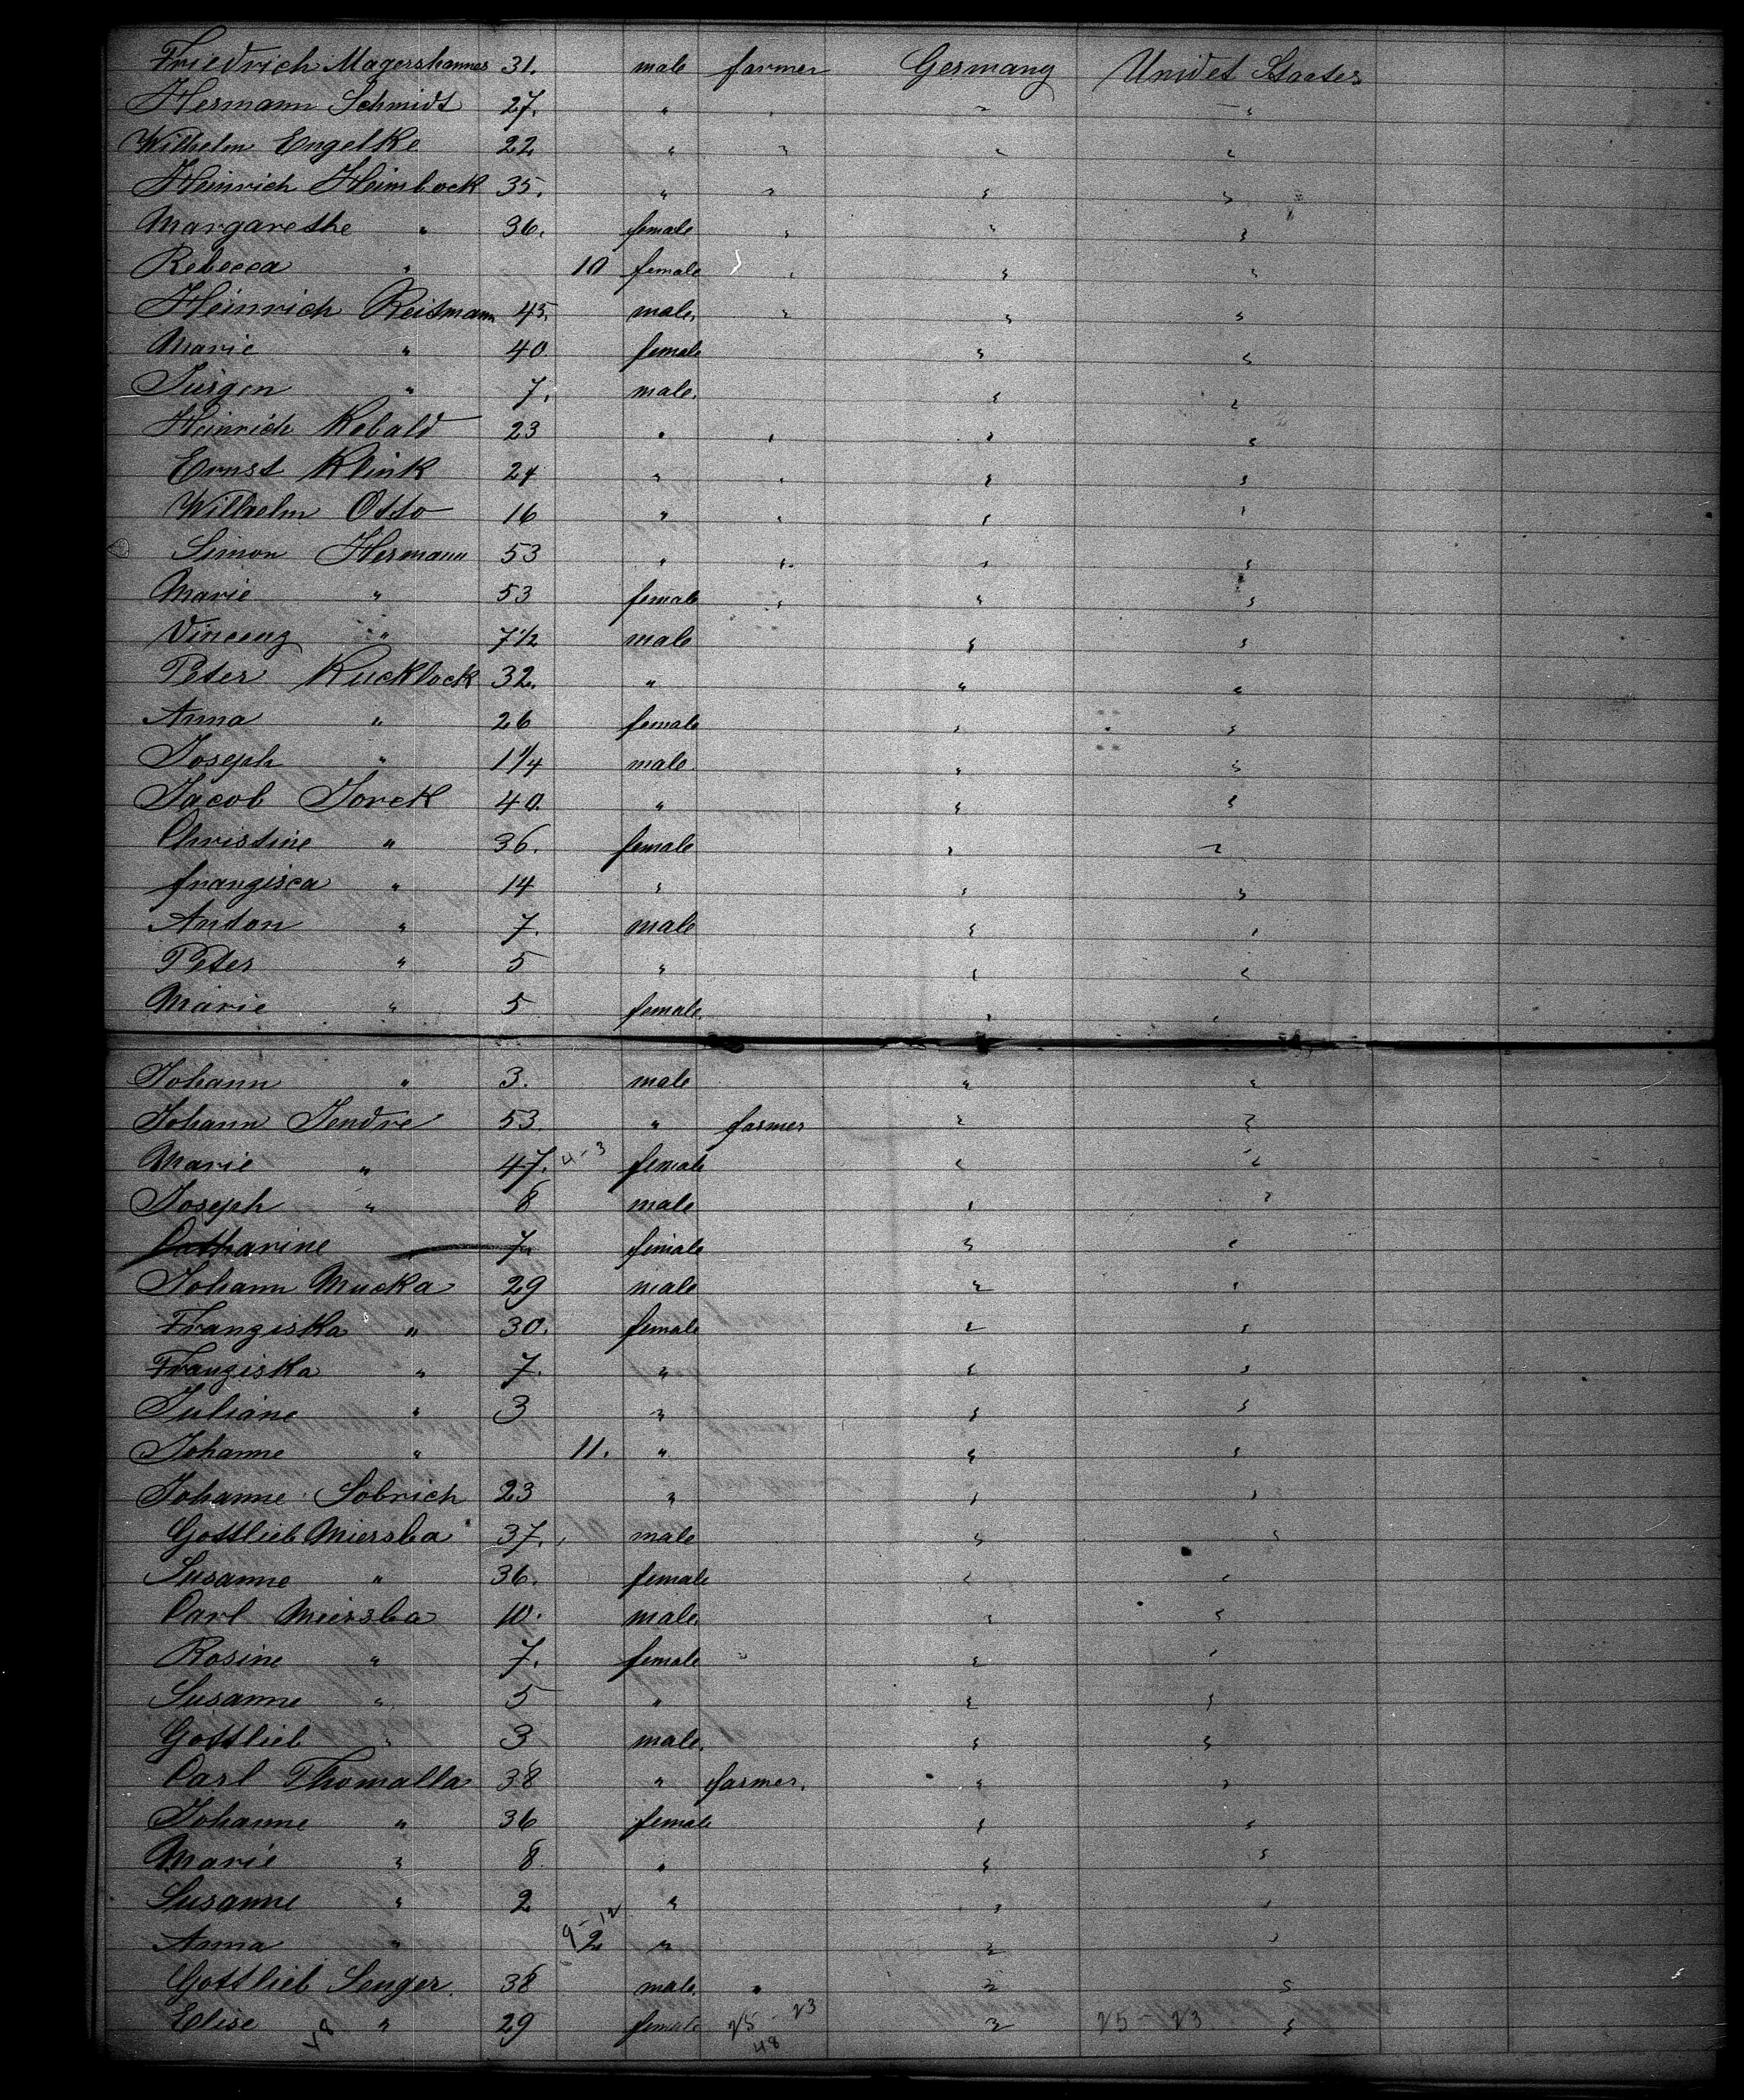 Friedrich Magershannes 31. male farmer Germany Unidet Staates
Hermann Schmidt 27. " " " "
Wilhelm Engelke 22 " " " "
Heinrich Heimbock 35. " " " "
Margarethe " 36. female " " "
Rebecca " 10 female " " "
Heinrich Reitmann 45. male. " " "
Marie " 40. female " "
Jurgen " 7. male. " "
Heinrich Kobald 23 " " " "
Ernst Klink 24 " " " "
Wilhelm Otto 16 " " " "
Simon Hermann 53 " " " "
Marie " 53 female " " "
Vincenz " 7 1/2 male " "
Peter Kucklock 32. " " "
Anna " 26 female " "
Joseph " 1 1/4 male. " "
Jacob Jorck 40. " " "
Christine " 36. female " "
franzisca " 14 " " "
Anton " 7. male " "
Peter " 5 " " "
Marie " 5 female. " "
Johann " 3. male " "
Johann Jendre 53. " farmer " "
Marie " 47. 4-3 female " "
Joseph " 8 male " "
Catharine 7 female " "
Johann Mucka 29 male " "
Franziska " 30. female " "
Franziska " 7. " " "
Juliane " 3 " " "
Johanne " 11. " " "
Johanne Sobrich 23 " " "
Gottlieb Miersba 37. male " "
Susanne " 36. female " "
Carl Miersba 10. male " "
Rosine " 7. female " "
Susanne " 5 " " "
Gottlieb " 3 male. " "
Carl Thomalla 38 " farmer. " "
Johanne " 36 female " "
Marie " 8. " " "
Susanne " 2 " " "
Anna " 9-12 2 " " "
Gottlieb Senger. 38 male. " " "
Elise " 29 female 25-23 " 25-23 "
48 48